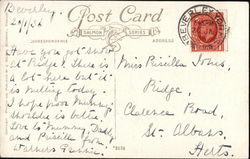 Beverley
Post Card
SALMON SERIES
CORRESPONDENCE
ADDRESS
BEVERLEY
Have you got snow
at Ridge? There is
a lot here but it
is melting today.
I hope poor Mummy
shoulder is better.
Love to Mummy, Daddy
and Priscilla from
Miss Priscilla Jones,
Ridge,
Clarence Road,
St. Albans,
Herts.